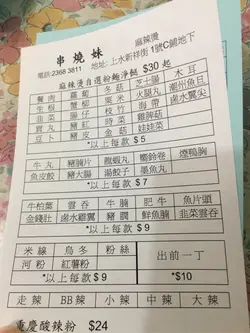 麻辣燙
串燒妹
電話:2368 3811 地址: 上水新祥街 1號C鋪地下
麻辣燙自選粉麵淨餸 $30 起
豬肉 蘿蔔 冬菇 芝士腸 木耳
生根 蟹柳 粟米 火腿丸 潮州魚旦
韭菜 腸仔 枝竹 海帶 鹵水翼尖
貢丸 豬紅 魚旦 金菇
豆卜 豬皮 豆苗 娃娃菜
*以上每款 $ 5
牛丸 豬腩片 龍蝦丸 響鈴卷 煙鴨胸
魚皮餃 豬大腸 湯餃子 墨魚丸
*以上每款 $ 7
牛柏葉 雲吞 牛腩 肥牛 魚片頭
金錢肚 鹵水雞翼 豬潤 鮮魚腩 韭菜雲吞
*以上每款 $ 9
米線 烏冬 粉絲 出前一丁
河粉 紅薯粉
*以上每款 $ 9 *$10
走辣 BB辣 小辣 中辣 大辣
重慶酸辣粉 $24